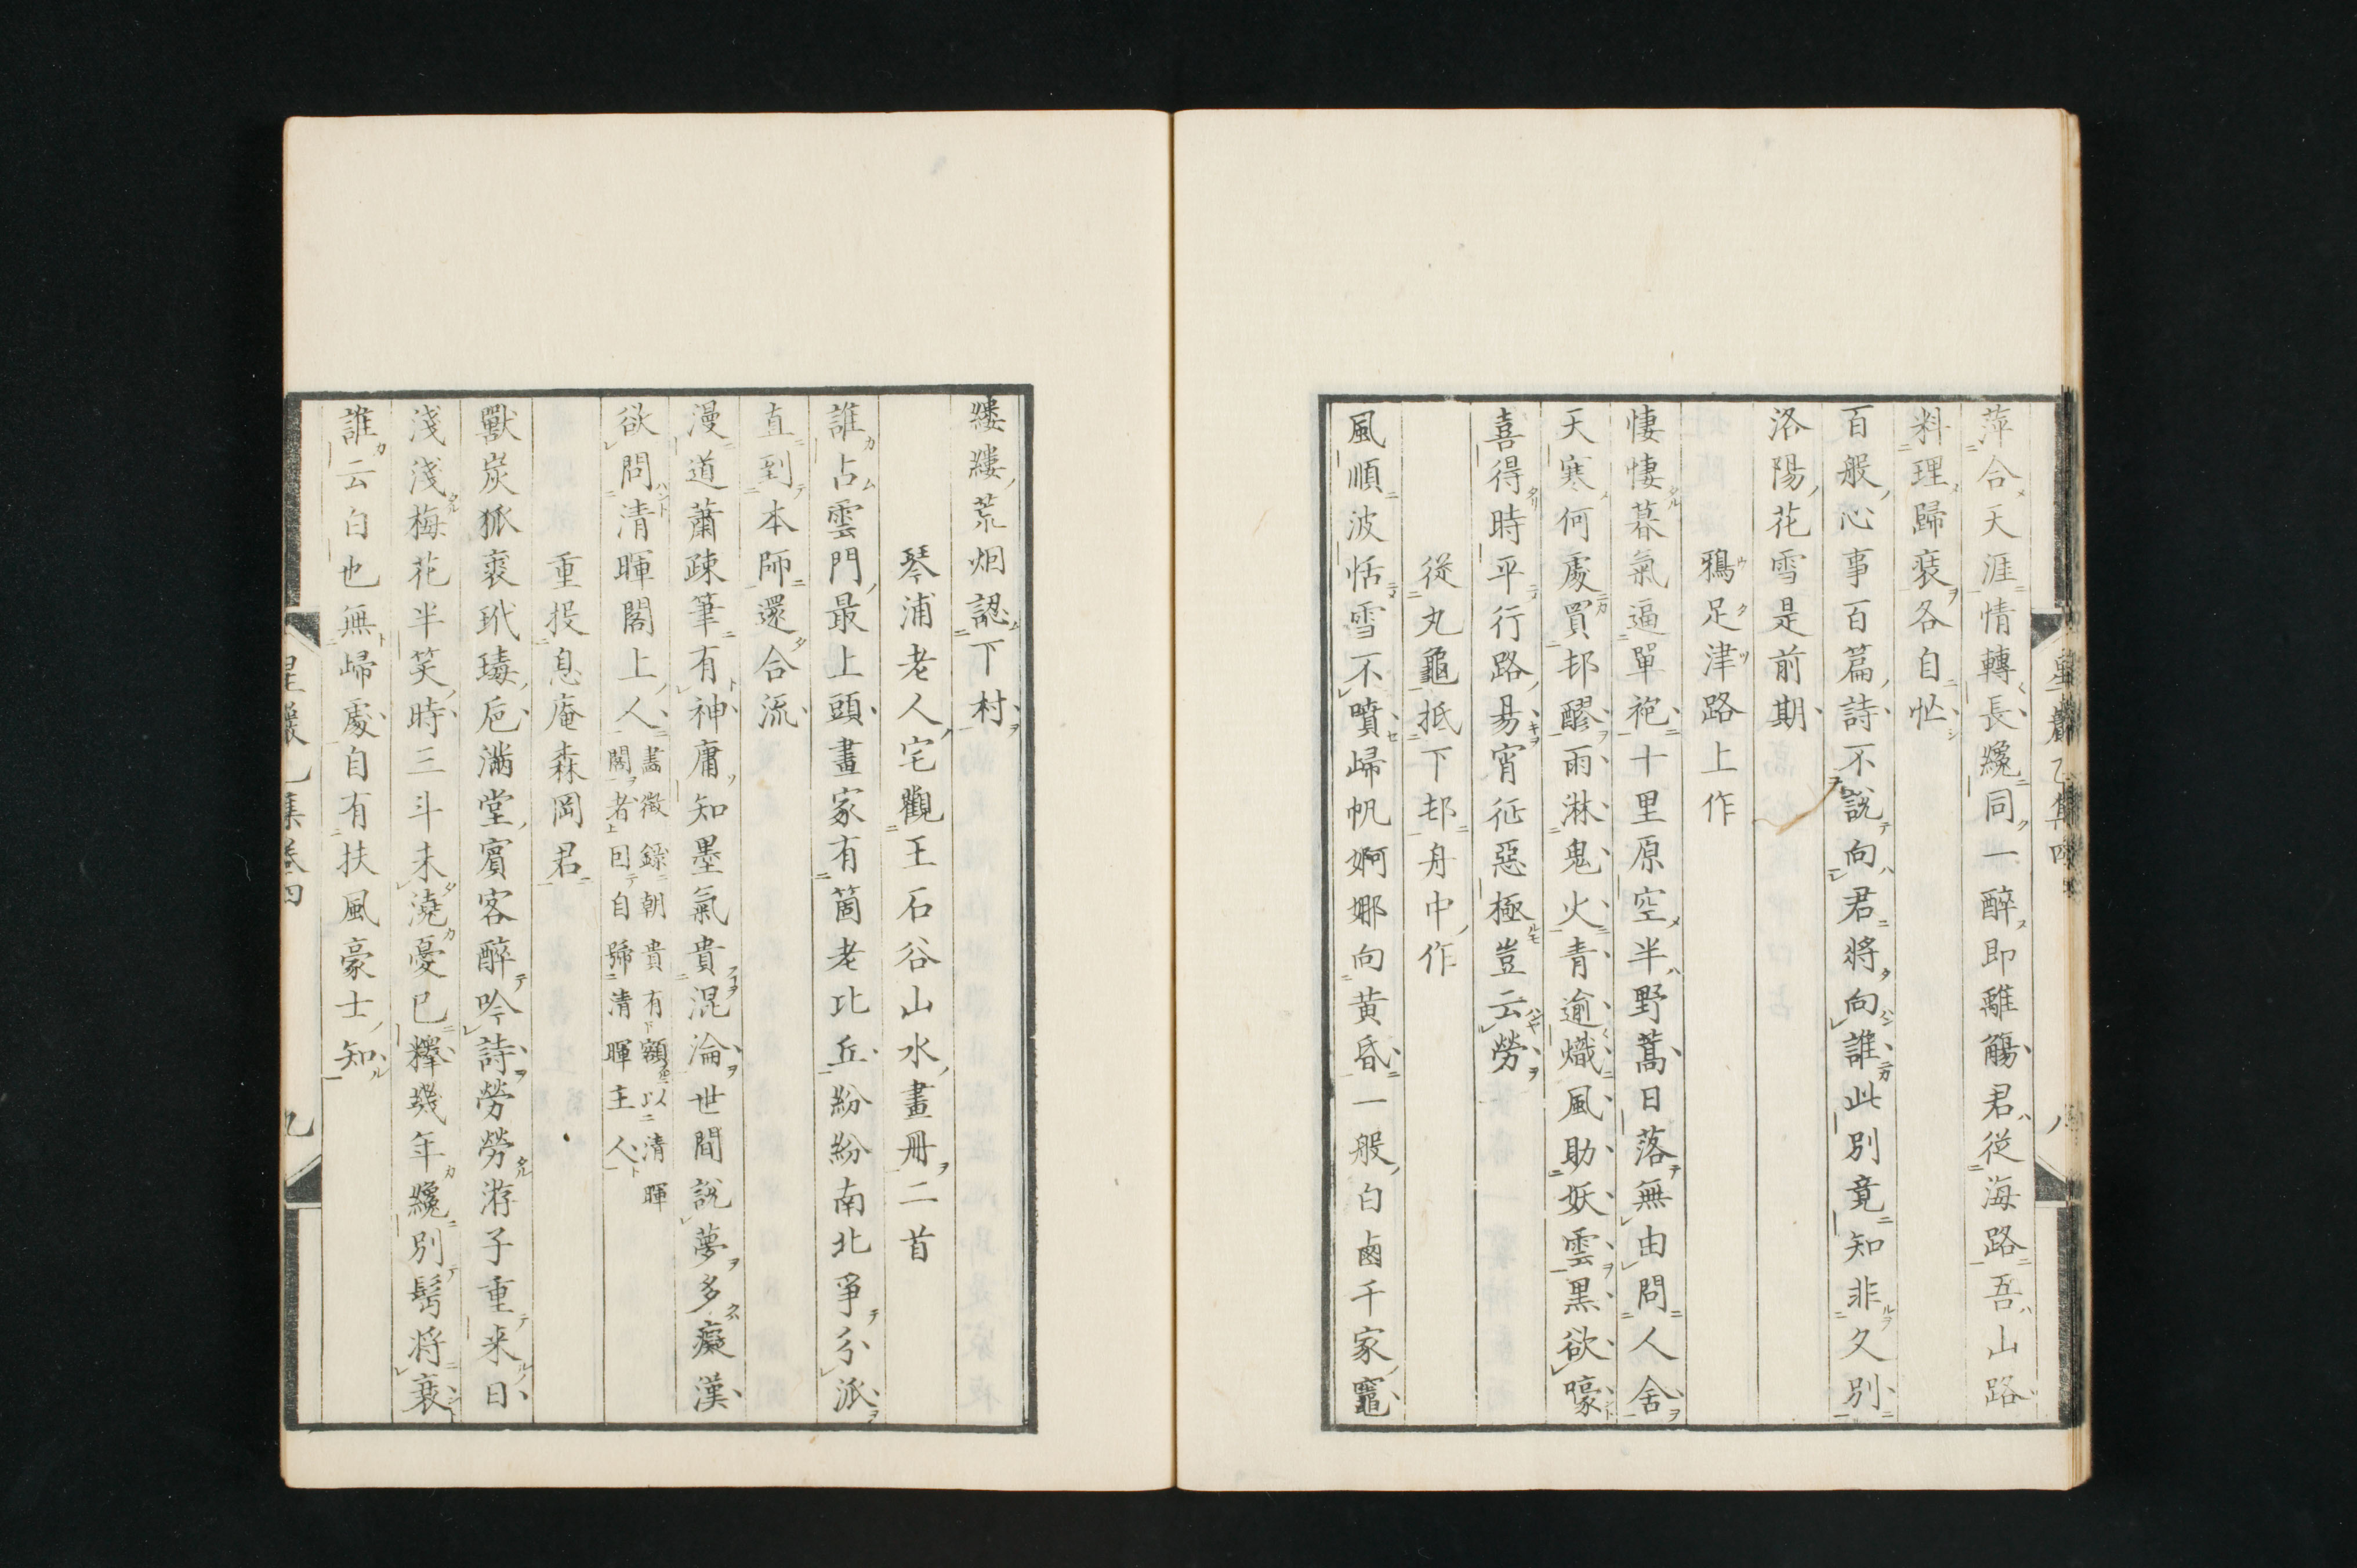 萍合天涯情轉長纔同一醉即離觴君從海路吾山路
料理歸裝各自忙
百般心事百篇詩不說向君將向誰此別竟知非久別
洛陽花雪是前期
鴉足津路上作
悽悽暮氣逼單袍十里原空半野蒿日落無由問人舍
天寒何處買邨醪雨淋鬼火青逾熾風助妖雲黑欲嚎
喜得時平行路易宵征惡極豈云勞
從丸龜抵下邨舟中作
風順波恬雪不噴歸帆婀娜向黃昏一般白鹵千家竈
縷縷荒烟認下村
琴浦老人宅觀王石谷山水畫冊二首
誰占雲門最上頭畫家有箇老比丘紛紛南北爭分派
直到本師還合流
漫道蕭疎筆有神庸知墨氣貴混淪世間說夢多癡漢
欲問清暉閣上人畵徵錄朝貴有額以清暉
閣者因自號清暉主人
重投息庵森岡君
獸炭狐裘玳瑇卮滿堂賓客醉吟詩勞勞游子重来日
淺淺梅花半笑時三斗未澆憂已釋幾年纔別鬂将衰
誰云白也無歸處自有扶風豪士知